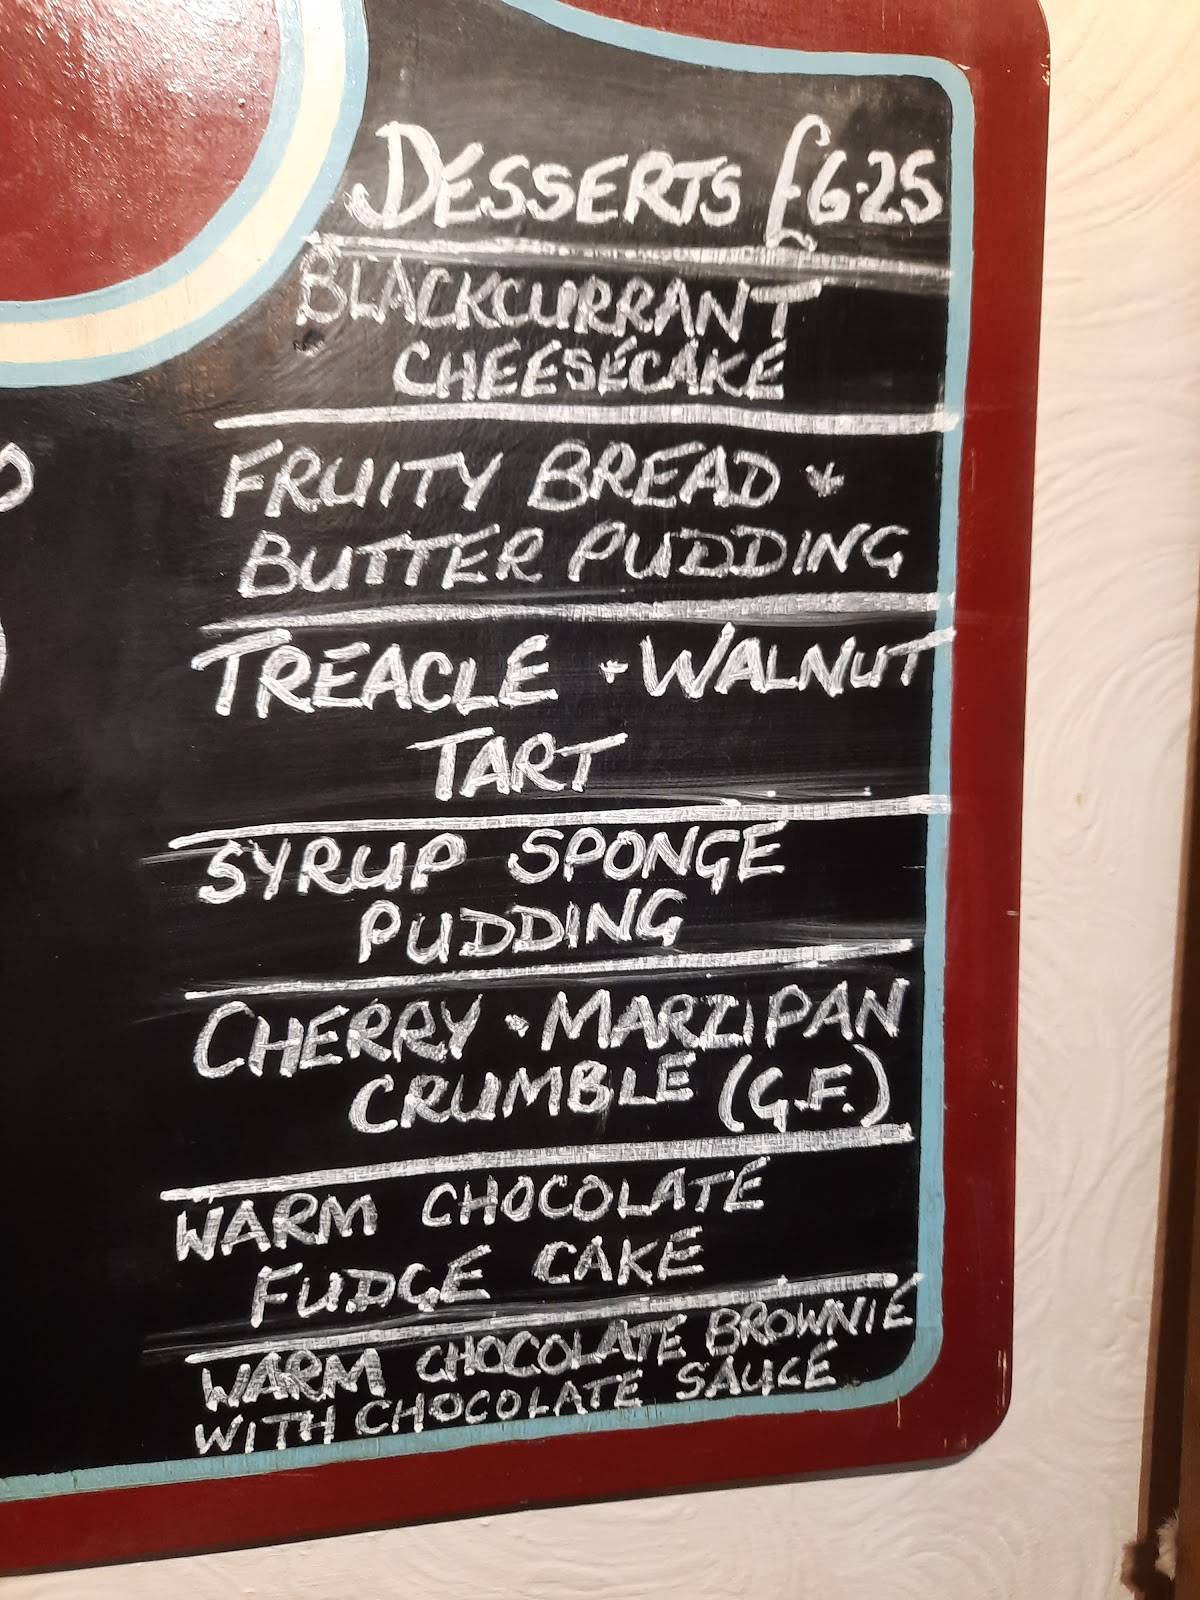 DESSERTS £6.25
BLACKCURRANT
CHEESECAKE
FRUITY BREAD +
BUTTER PUDDING
TREACLE + WALNUT
TART
SYRUP SPONGE
PUDDING
CHERRY + MARZIPAN
CRUMBLE (G.F.)
WARM CHOCOLATE
FUDGE CAKE
WARM CHOCOLATE BROWNIE
WITH CHOCOLATE SAUCE